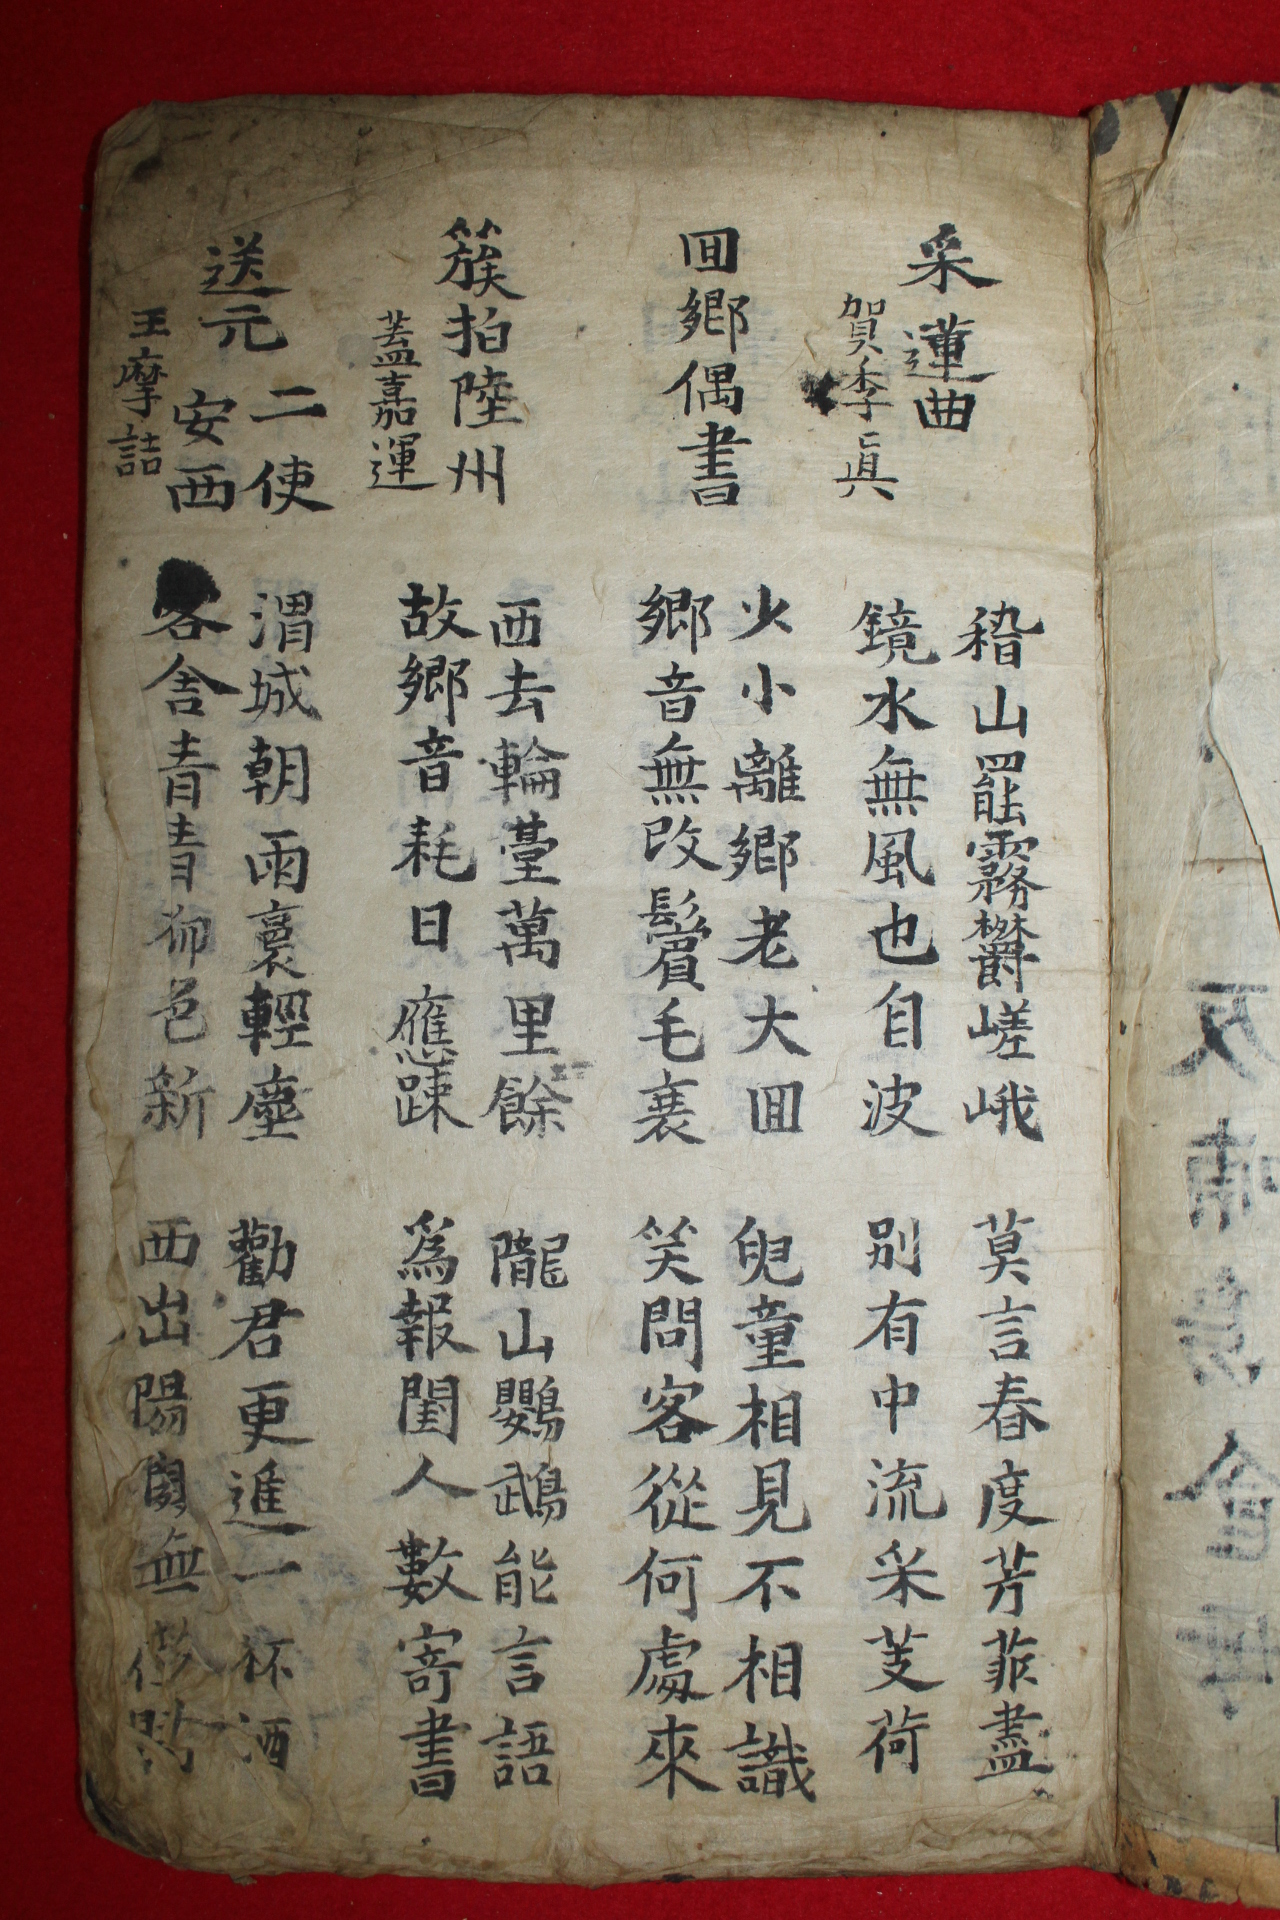 采蓮曲
賀季眞
稽山罷霧欝嵯峨
鏡水無風也自波
莫言春度芳菲盡
別有中流采芰荷
囬鄕偶書
少小離鄕老大囬
鄕音無改鬢毛衰
兒童相見不相識
笑問客從何處來
簇拍陸州
蓋嘉運
西去輪臺萬里餘
故鄕音耗日應踈
隴山鸚鵡能言語
爲報閨人數寄書
送元二使
安西
王摩詰
渭城朝雨裛輕塵
客舍靑靑柳色新
勸君更進一杯酒
西出陽關無